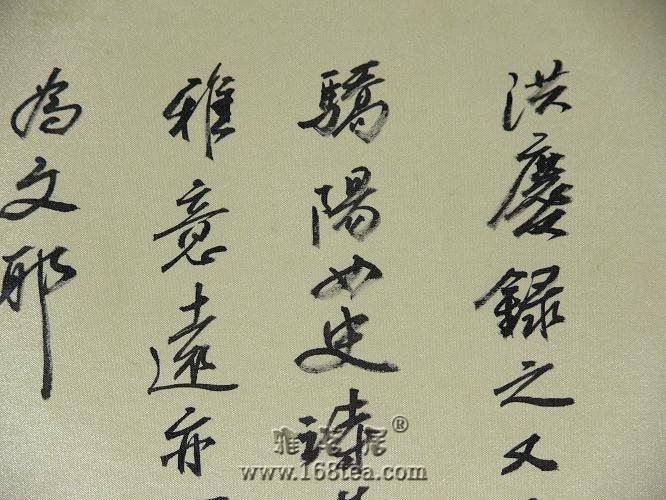 洪慶錄之又
驕陽女史
雅意遠亦
為文耶
雅茗居®
www.168tea.com